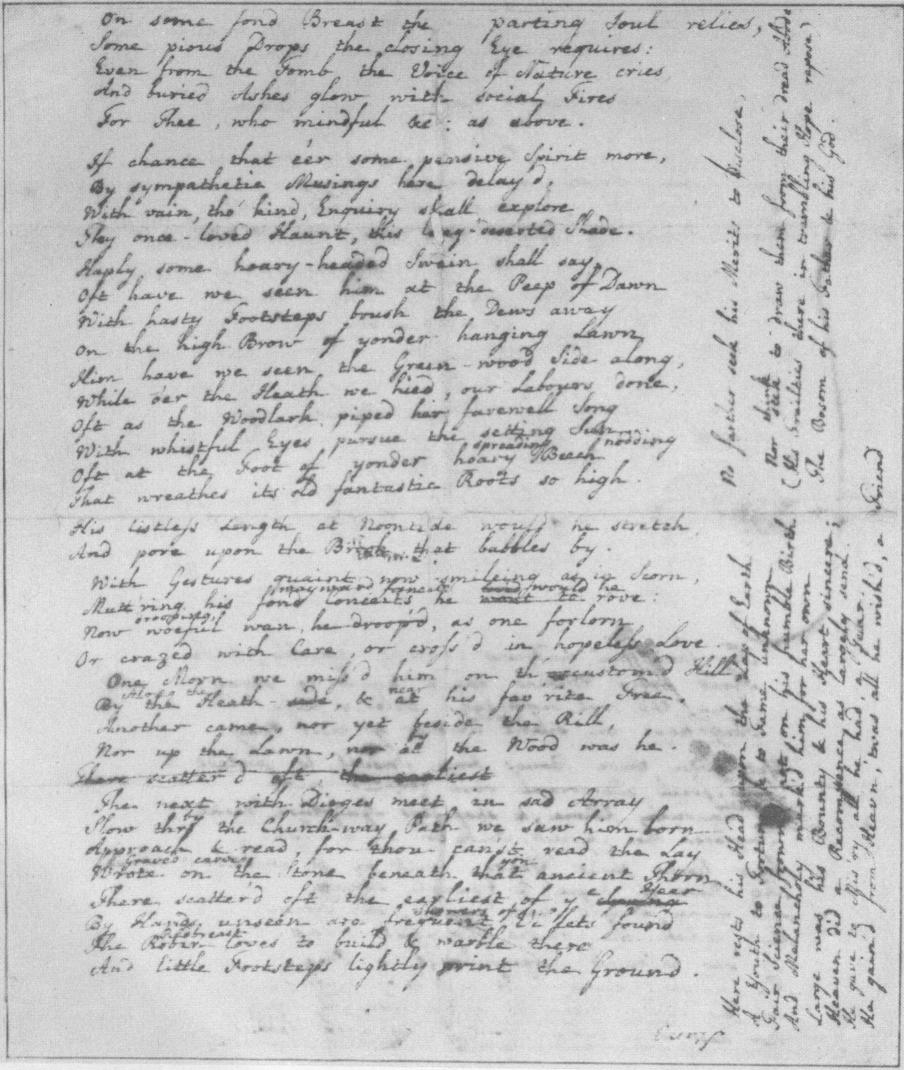 On some fond Breast the parting Soul relies,
Some pious Drops the closing Eye requires:
Even from the Tomb the Voice of Nature cries
And buried Ashes glow with social Fires
For Thee, who mindful &c: as above.
If chance that e'er some pensive Spirit more,
By sympathetic Musings here delay'd,
With vain, tho' kind, Enquiry shall explore
Thy once-loved Haunt, this long-deserted Shade.
Haply some hoary-headed Swain shall say,
Oft have we seen him at the Peep of Dawn
With hasty Footsteps brush the Dews away
On the high Brow of yonder hanging Lawn
Him have we seen the Green-wood Side along,
While o'er the Heath we hied, our Labours done,
Oft as the Woodlark piped her farewell Song
With whistful Eyes pursue the setting Sun.
spreading nodding
Oft at the Foot of yonder hoary Beech
That wreathes its old fantastic Roots so high.
His listless Length at Noontide would he stretch,
And pore upon the Brook that babbles by.
With Gestures quaint now smileing as in Scorn,
wayward fancies would he
Mutt'ring his fond Conceits he rove:
drooping,
Now woeful wan, he droop'd, as one forlorn
Or crazed with Care, or cross'd in hopeless Love.
One Morn we miss'd him on th' accustom'd Hill,
Along the near
By the Heath-side, & at his fav'rite Tree,
Another came, nor yet beside the Rill,
by
Nor up the Lawn, nor at the Wood was he.
There scatter'd oft, the earliest
The next with Dirges meet in sad Array
by
Slow thro the Church-way Path we saw him born
Approach & read, for thou canst read the Lay
Graved carved yon
Wrote on the Stone beneath that ancient Thorn
Year
There scatter'd oft the earliest of ye Spring
showers of
By Hands unseen are frequent Vi'lets found
Redbreast
The Robin loves to build & warble there
And little Footsteps lightly print the Ground.
Here rests his Head upon the Lap of Earth
A Youth to Fortune & to Fame unknown
Fair Science frown'd not on his humble Birth
And Melancholy mark'd him for her own
Large was his Bounty & his Heart sincere;
Heaven did a Recompence as largely send.
He gave to Mis'ry all he had, a Tear.
He gain'd from Heav'n; 'twas all he wish'd, a Friend
No farther seek his Merits to disclose,
think
Nor seek to draw them from their dread Abode
(His Frailties there in trembling Hope repose)
The Bosom of his Father & his God.